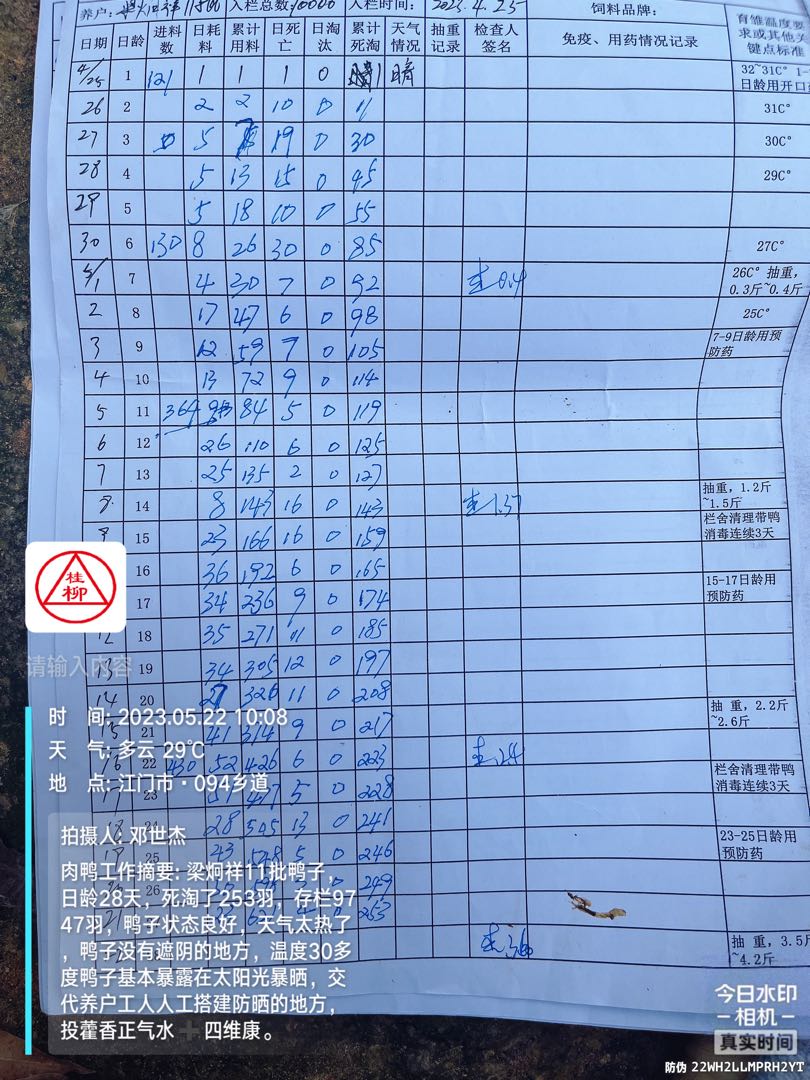 养户: 11500 入栏总数 10000 入栏时间: 2023.4.25 饲料品牌:
日期 日龄 进料数 日耗料 累计用料 日死亡 日淘汰 累计死淘 天气情况 抽重记录 检查人签名 免疫、用药情况记录 育雏温度要求或其他关键点标准
4/25 1 121 1 1 1 0 1 晴 32~31C° 1-日龄用开口
26 2 2 2 10 0 11 31C°
27 3 5 19 0 30 30C°
28 4 5 13 15 0 45 29C°
29 5 5 18 10 0 55
30 6 130 8 26 30 0 85 27C°
5/1 7 4 30 7 0 92 26C° 抽重, 0.3斤~0.4斤
2 8 17 47 6 0 98 25C°
3 9 12 59 7 0 105 7-9日龄用预防药
4 10 13 72 9 0 114
5 11 364 84 5 0 119
6 12 26 110 6 0 125
7 13 25 135 2 0 127
8 14 8 143 16 0 143 1.37 抽重, 1.2斤~1.5斤
9 15 23 166 16 0 159 栏舍清理带鸭消毒连续3天
16 36 192 6 0 165 15-17日龄用预防药
17 34 236 9 0 174
12 18 35 271 11 0 185
13 19 34 305 12 0 197
14 20 326 11 0 208 抽 重, 2.2斤~2.6斤
15 21 41 9 0 217
16 22 430 52 426 6 0 223 栏舍清理带鸭消毒连续3天
17 23 5 0 228
24 28 505 13 0 241 23-25日龄用预防药
25 43 548 5 0 246
26 0 249
21 253
抽 重, 3.5斤~4.2斤
桂柳
请输入内容
时 间: 2023.05.22 10:08
天 气: 多云 29℃
地 点: 江门市·094乡道
拍摄人: 邓世杰
肉鸭工作摘要: 梁炯祥11批鸭子,
日龄28天, 死淘了253羽, 存栏97
47羽, 鸭子状态良好, 天气太热了
, 鸭子没有遮阴的地方, 温度30多
度鸭子基本暴露在太阳光暴晒, 交
代养户工人人工搭建防晒的地方,
投藿香正气水➕四维康。
今日水印
-相机-
真实时间
防伪 22WH2LLMPRH2YT